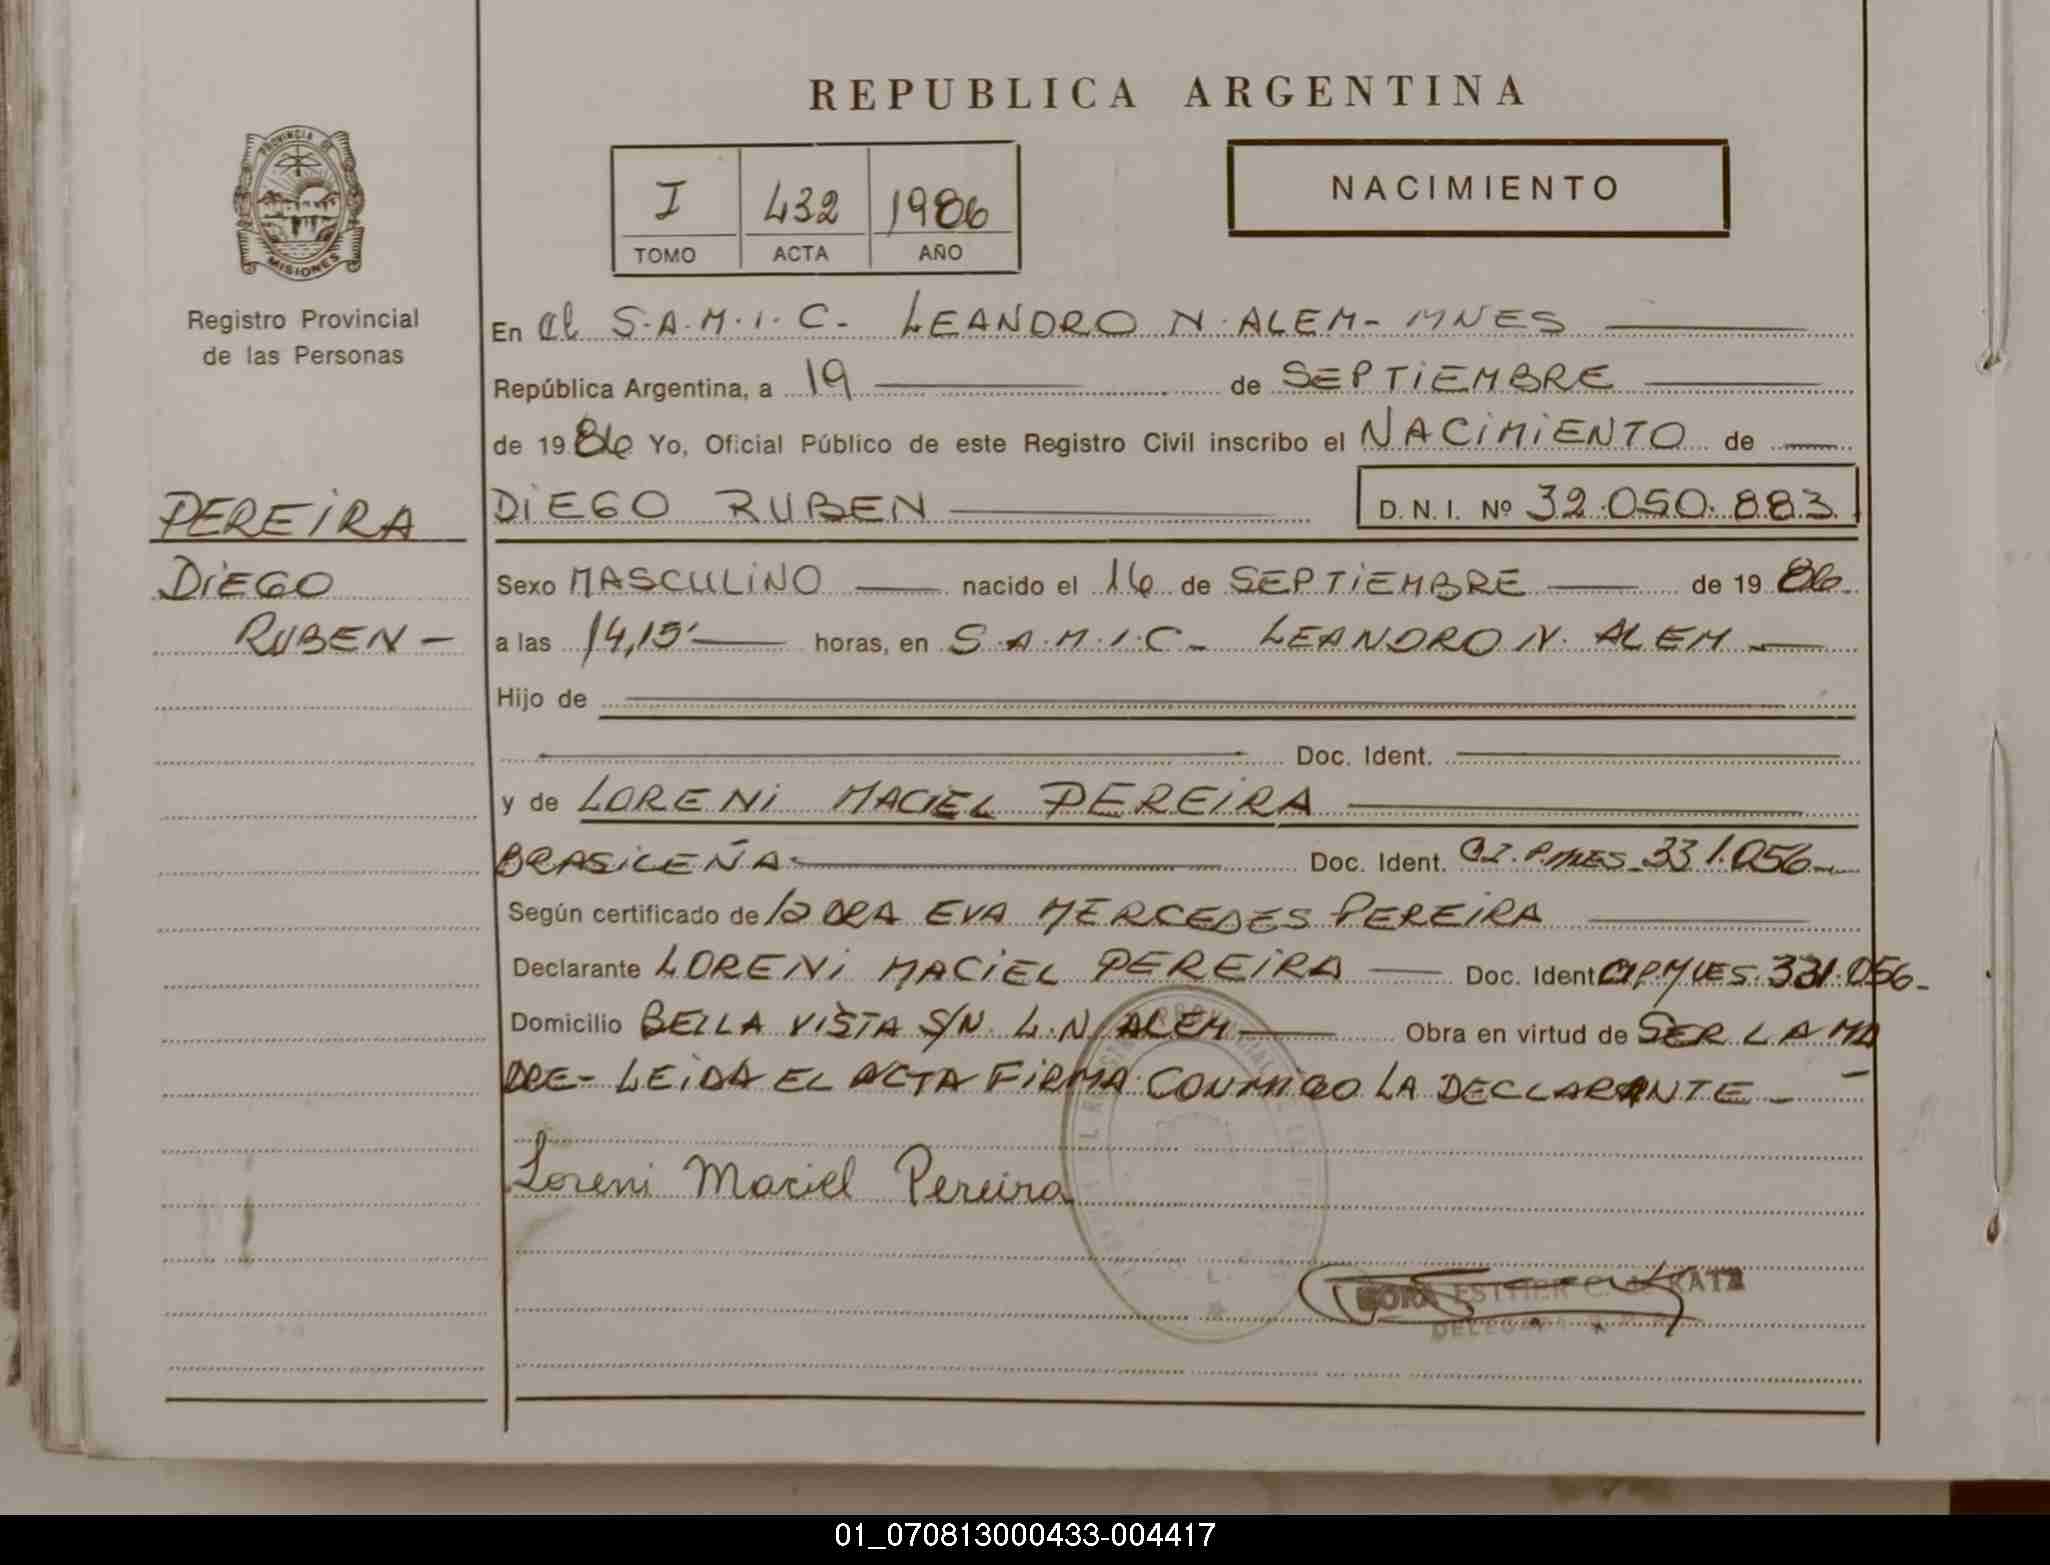 REPUBLICA ARGENTINA
PROVINCIA DE
MISIONES
Registro Provincial
de las Personas
I 432 1986
TOMO ACTA AÑO
NACIMIENTO
En el S.A.M.I.C. LEANDRO N. ALEM - MNES
República Argentina, a 19 de SEPTIEMBRE
de 1986 Yo, Oficial Público de este Registro Civil inscribo el NACIMIENTO de
PEREIRA
DIEGO
RUBEN -
DIEGO RUBEN D. N. I. Nº 32.050.883
Sexo MASCULINO nacido el 16 de SEPTIEMBRE de 1986
a las 14,15' horas, en S.A.M.I.C. - LEANDRO N. ALEM
Hijo de
Doc. Ident.
y de LORENI MACIEL PEREIRA
BRASILEÑA Doc. Ident. C.I.P.MNES. 331.056
Según certificado de la DRA EVA MERCEDES PEREIRA
Declarante LORENI MACIEL PEREIRA Doc. Ident CIP.MNES. 331.056-
Domicilio BELLA VISTA S/N. L.N. ALEM Obra en virtud de SER LA MA
DRE- LEIDA EL ACTA FIRMA CONMIGO LA DECLARANTE -
Loreni Maciel Pereira
ESTHER C. KATZ
DELEGADA
01_070813000433-004417